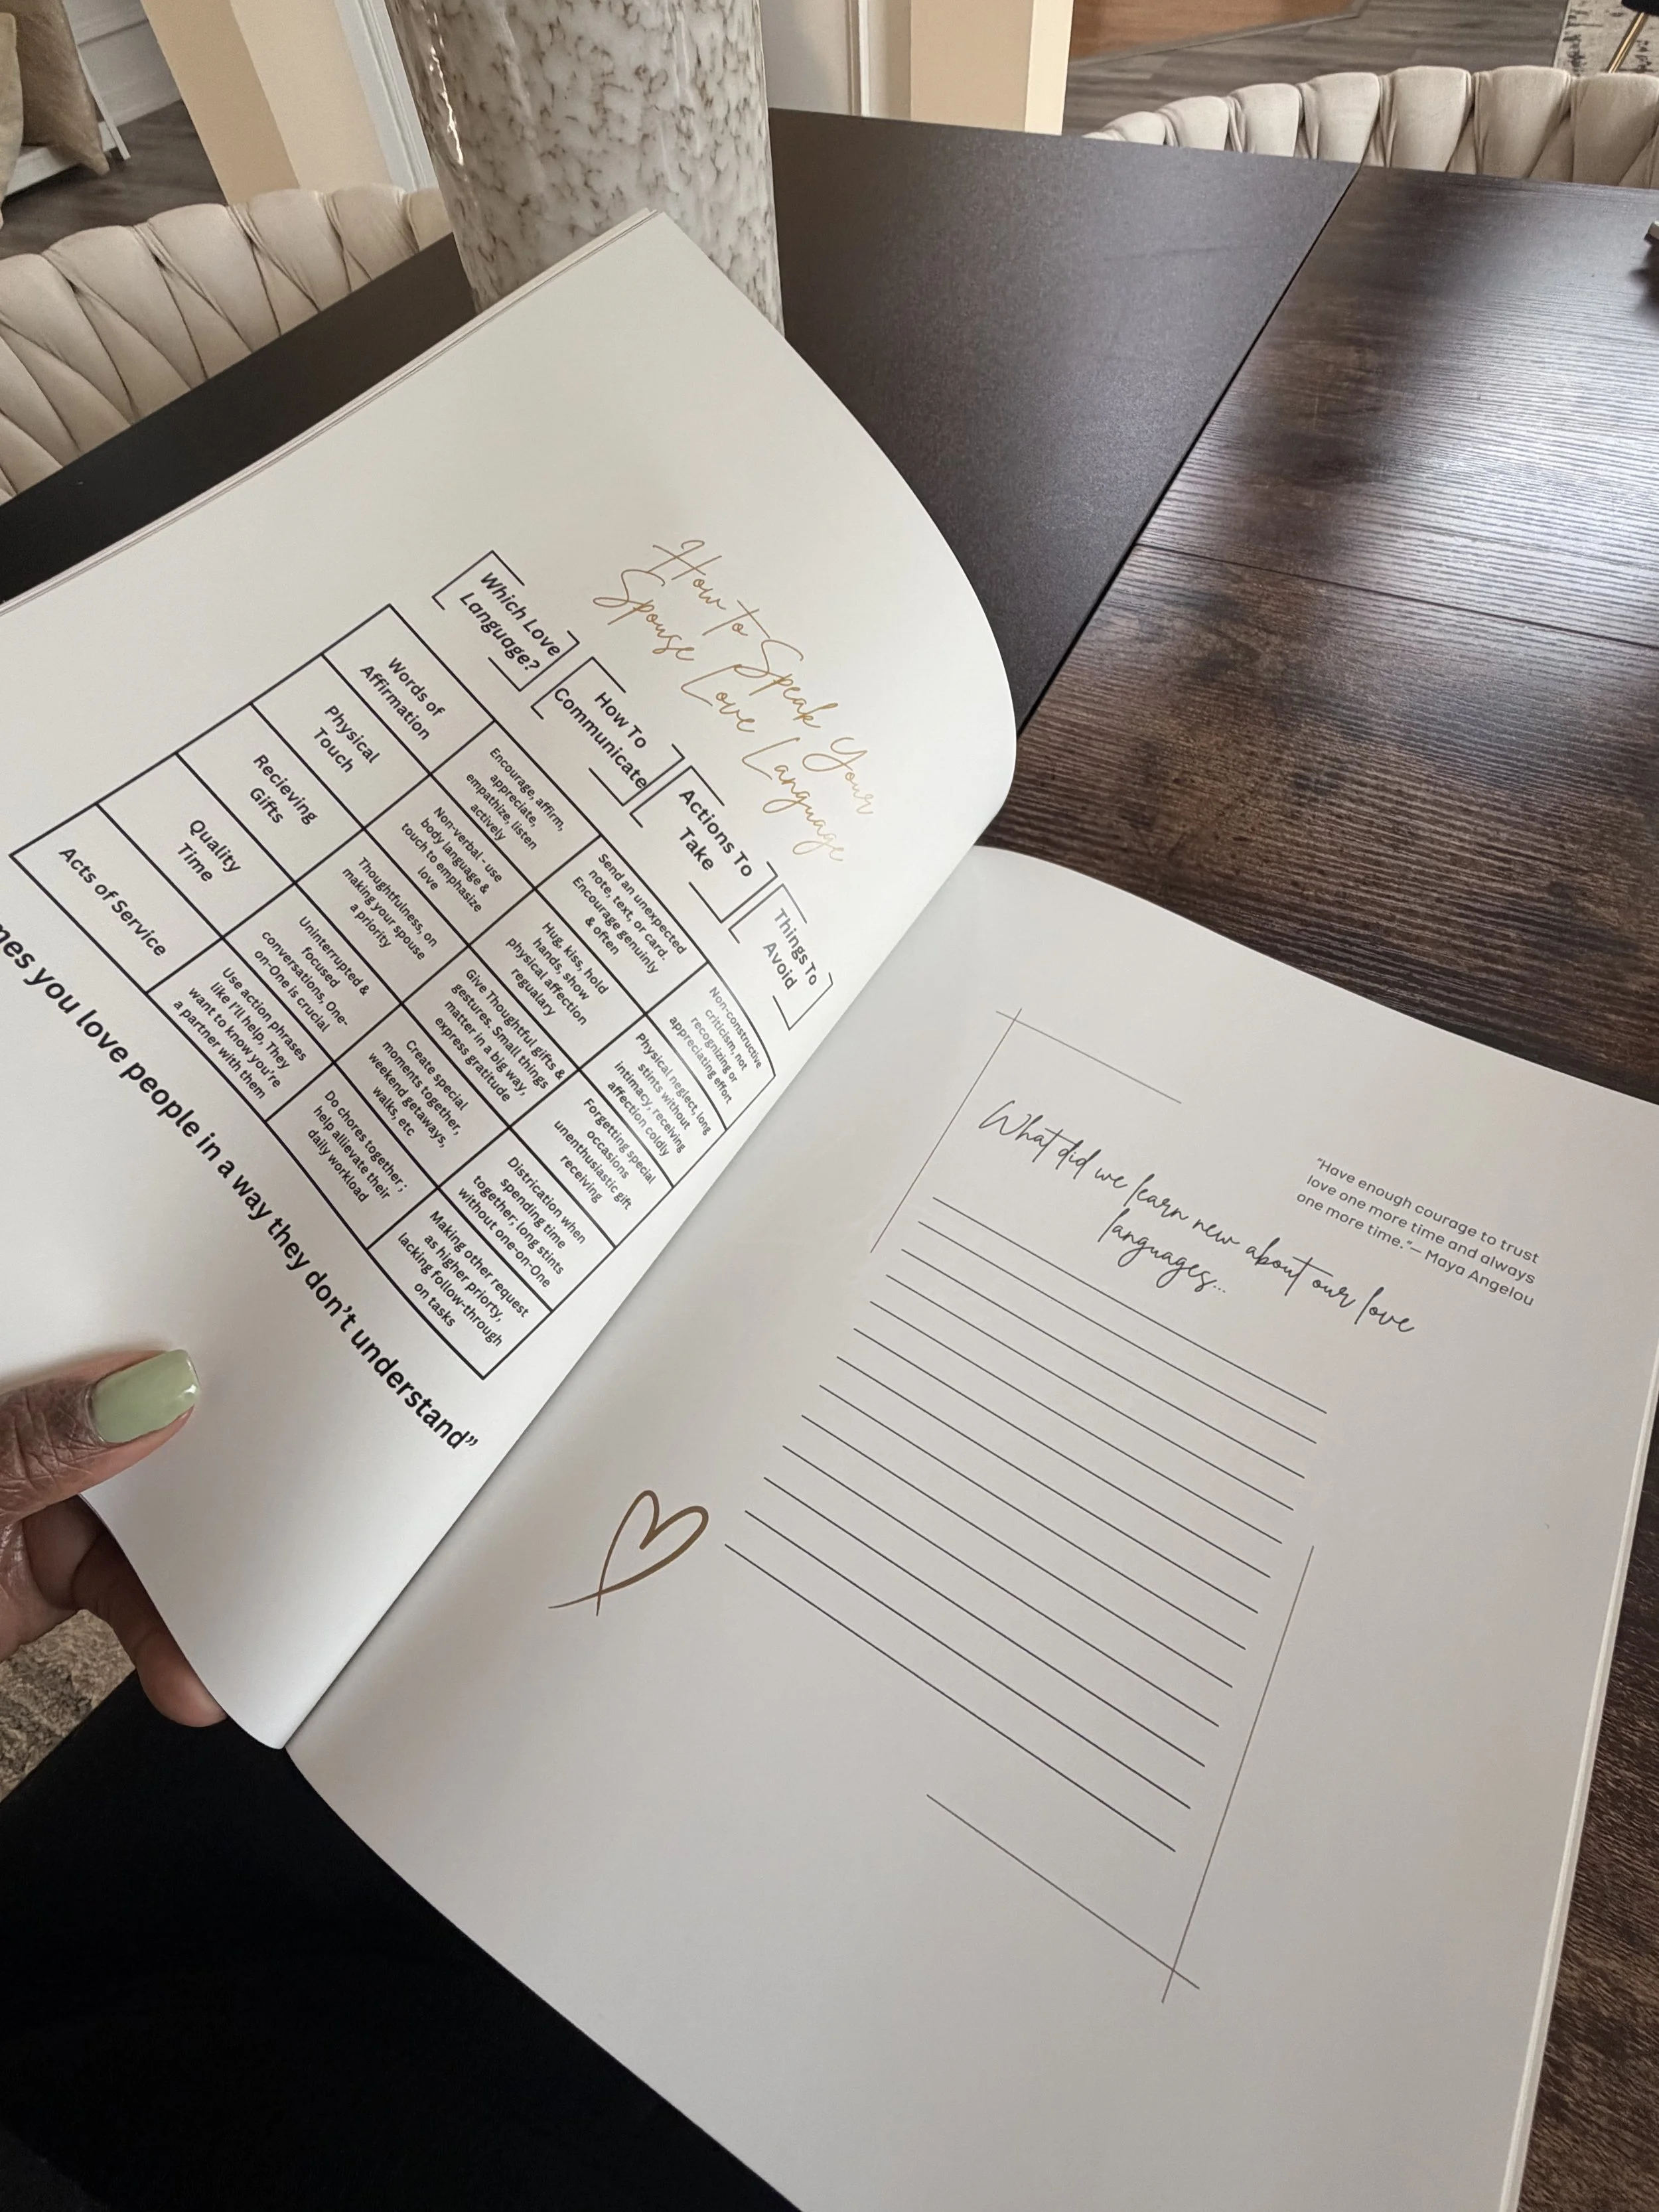 How to Speak Your
Spouse Love Language
Which Love
Language?
How To
Communicate
Actions To
Take
Things To
Avoid
Words of
Affirmation
Encourage, affirm,
appreciate,
empathize, listen
actively
Send an unexpected
note, text, or card.
Encourage genuinly
& often
Non-constructive
criticism, not
recognizing or
appreciating effort
Physical
Touch
Non-verbal - use
body language &
touch to emphasize
love
Hug, kiss, hold
hands, show
physical affection
regualary
Physical neglect, long
stints without
intimacy, receiving
affection coldly
Recieving
Gifts
Thoughtfulness, on
making your spouse
a priority
Give Thoughtful gifts &
gestures. Small things
matter in a big way,
express gratitude
Forgetting special
occasions
unenthusiastic gift
receiving
Quality
Time
Uninterrupted &
focused
conversations, One-
on-One is crucial
Create special
moments together,
weekend getaways,
walks, etc
Districation when
spending time
together; long stints
without one-on-One
Acts of Service
Use action phrases
like I'll help, They
want to know you're
a partner with them
Do chores together;
help allievate their
daily workload
Making other request
as higher priorty,
lacking follow-through
on tasks
you love people in a way they don't understand"
"Have enough courage to trust
love one more time and always
one more time."— Maya Angelou
What did we learn new about our love
languages...